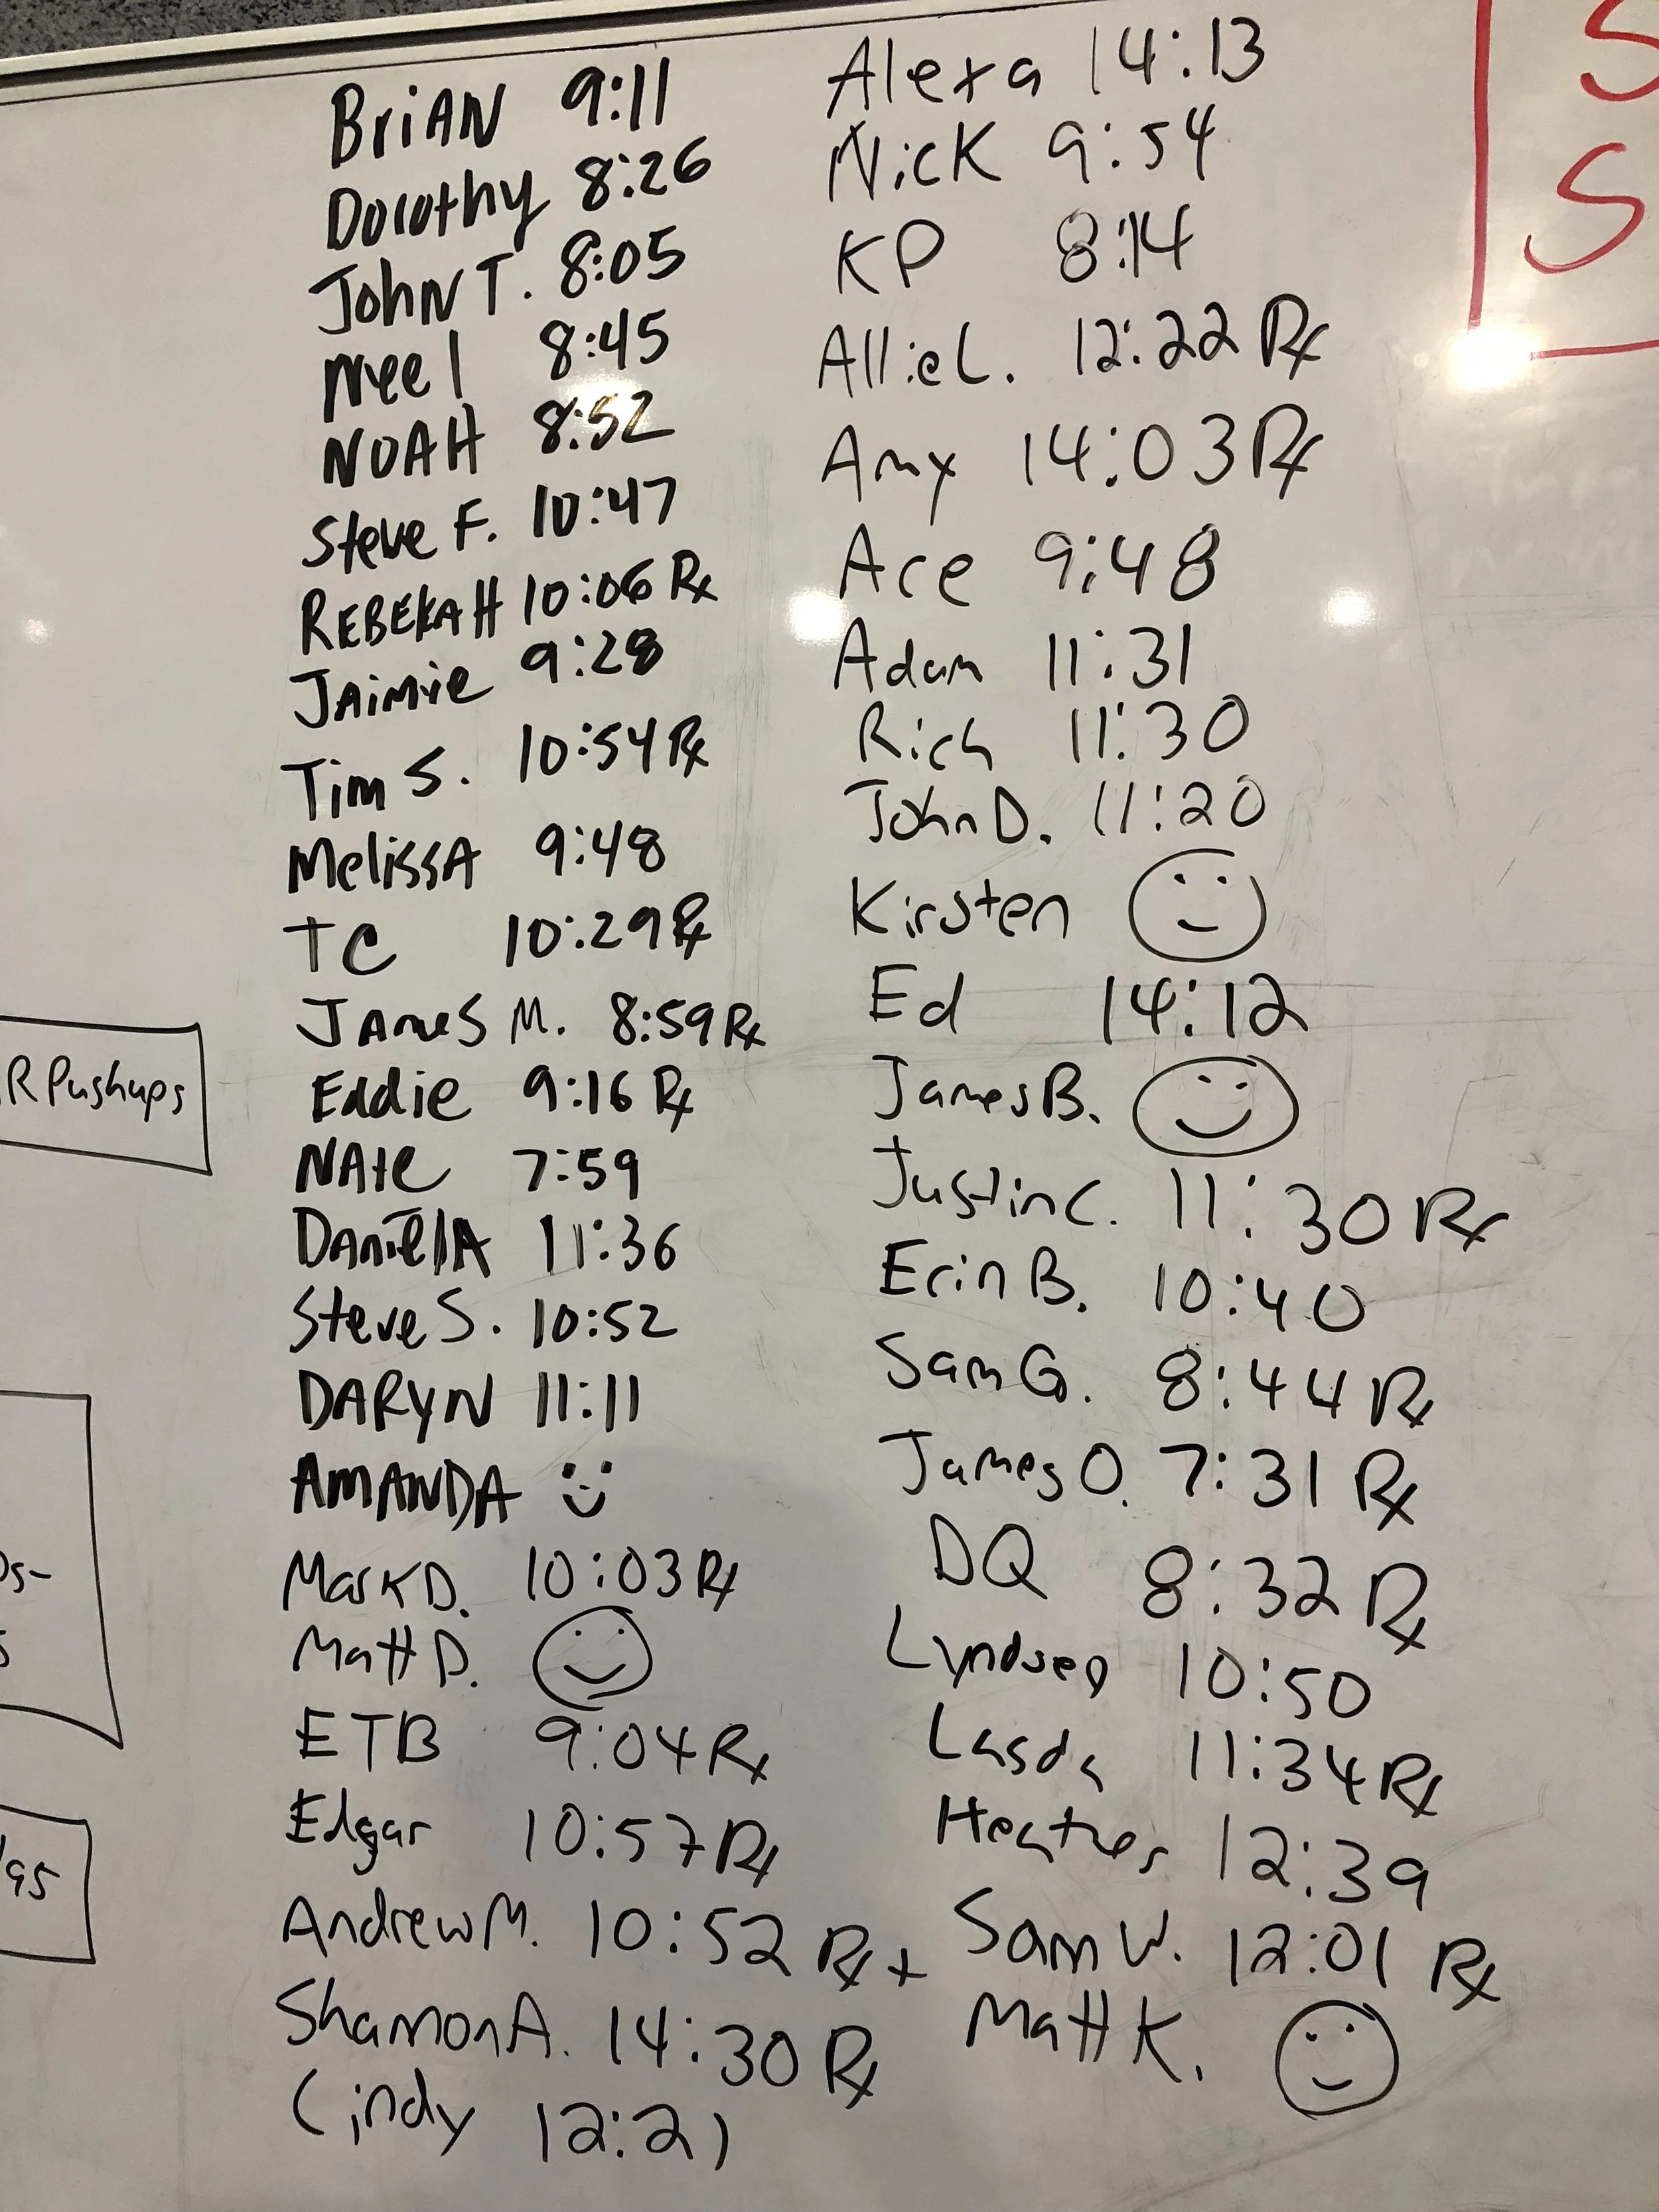 BriAN 9:11
Dorothy 8:26
JohN T. 8:05
Neel 8:45
NOAH 8:52
Steve F. 10:47
REBEKAH 10:06 Rx
JAimie 9:28
Tim S. 10:54 Rx
MelissA 9:48
TC 10:29 Rx
JAmeS M. 8:59 Rx
Eddie 9:16 Rx
NAte 7:59
DAniellA 11:36
Steve S. 10:52
DARyN 11:11
AMANDA
Mark D. 10:03 Rx
Matt D.
ETB 9:04 Rx
Edgar 10:57 Rx
Andrew M. 10:52 Rx+
Shannon A. 14:30 Rx
Cindy 12:21
Alexa 14:13
Nick 9:54
KP 8:14
Allie L. 12:22 Rx
Amy 14:03 Rx
Ace 9:48
Adam 11:31
Rich 11:30
John D. 11:20
Kirsten
Ed 14:12
James B.
Justin C. 11:30 Rx
Erin B. 10:40
Sam G. 8:44 Rx
James O. 7:31 Rx
DQ 8:32 Rx
Lyndsey 10:50
Lasda 11:34 Rx
Heather 12:39
Sam W. 12:01 Rx
Matt K.
R Pushups
S
S